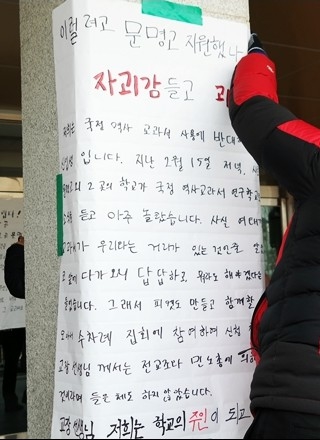 이럴 려고 문명고 지원했나
자괴감 들고 괴
저희는 국정 역사 교과서 사용에 반대하
신입생 입니다. 지난 2월 15일 저녁,
2곳의 학교가 국정 역사교과서 연구학교
소식을 듣고 아주 놀랐습니다. 사실 여태
교과서가 우리와는 거리가 있는 것인줄
로 다가오니 답답하고, 뭐라도 해야겠다는
들었습니다. 그래서 피켓도 만들고 함께할
모아서 수차례 집회에 참여하여 신청
교장 선생님 께서는 전교조다 민노총에
들은 체도 하지 않았습니다.
교장선생님 저희는 학교의 주인이 되고